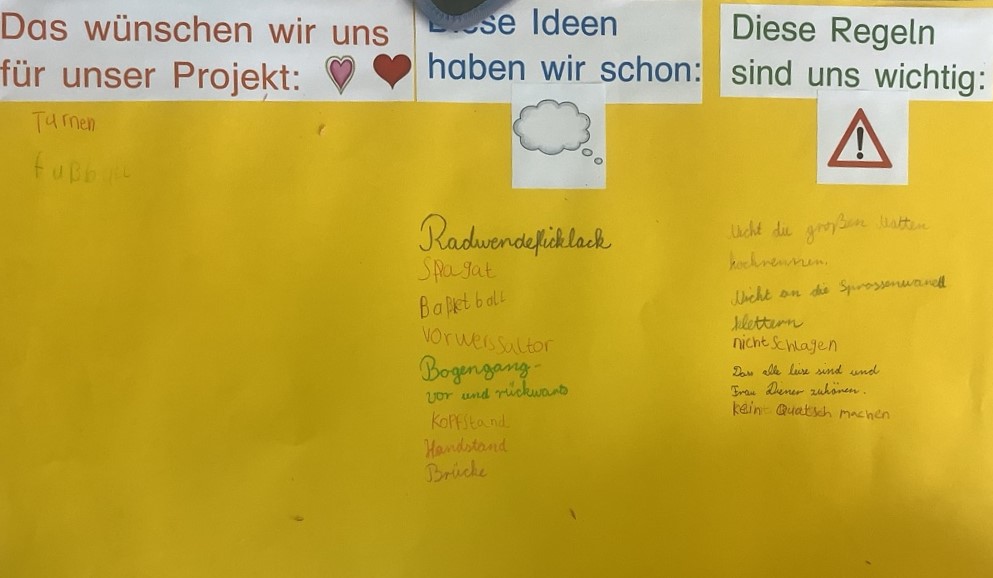 Das wünschen wir uns
für unser Projekt:
Turnen
Fußball
Diese Ideen
haben wir schon:
Radwendeflicklack
Spagat
Baßketball
Vorwerssaltor
Bogengang-
vor und rückwärts
Kopfstand
Handstand
Brücke
Diese Regeln
sind uns wichtig:
Nicht die großen Matten
hochrennen.
Nicht an die Sprossenwand
klettern
nicht Schlagen
Das alle leise sind und
Frau Diener zuhören.
kein Quatsch machen